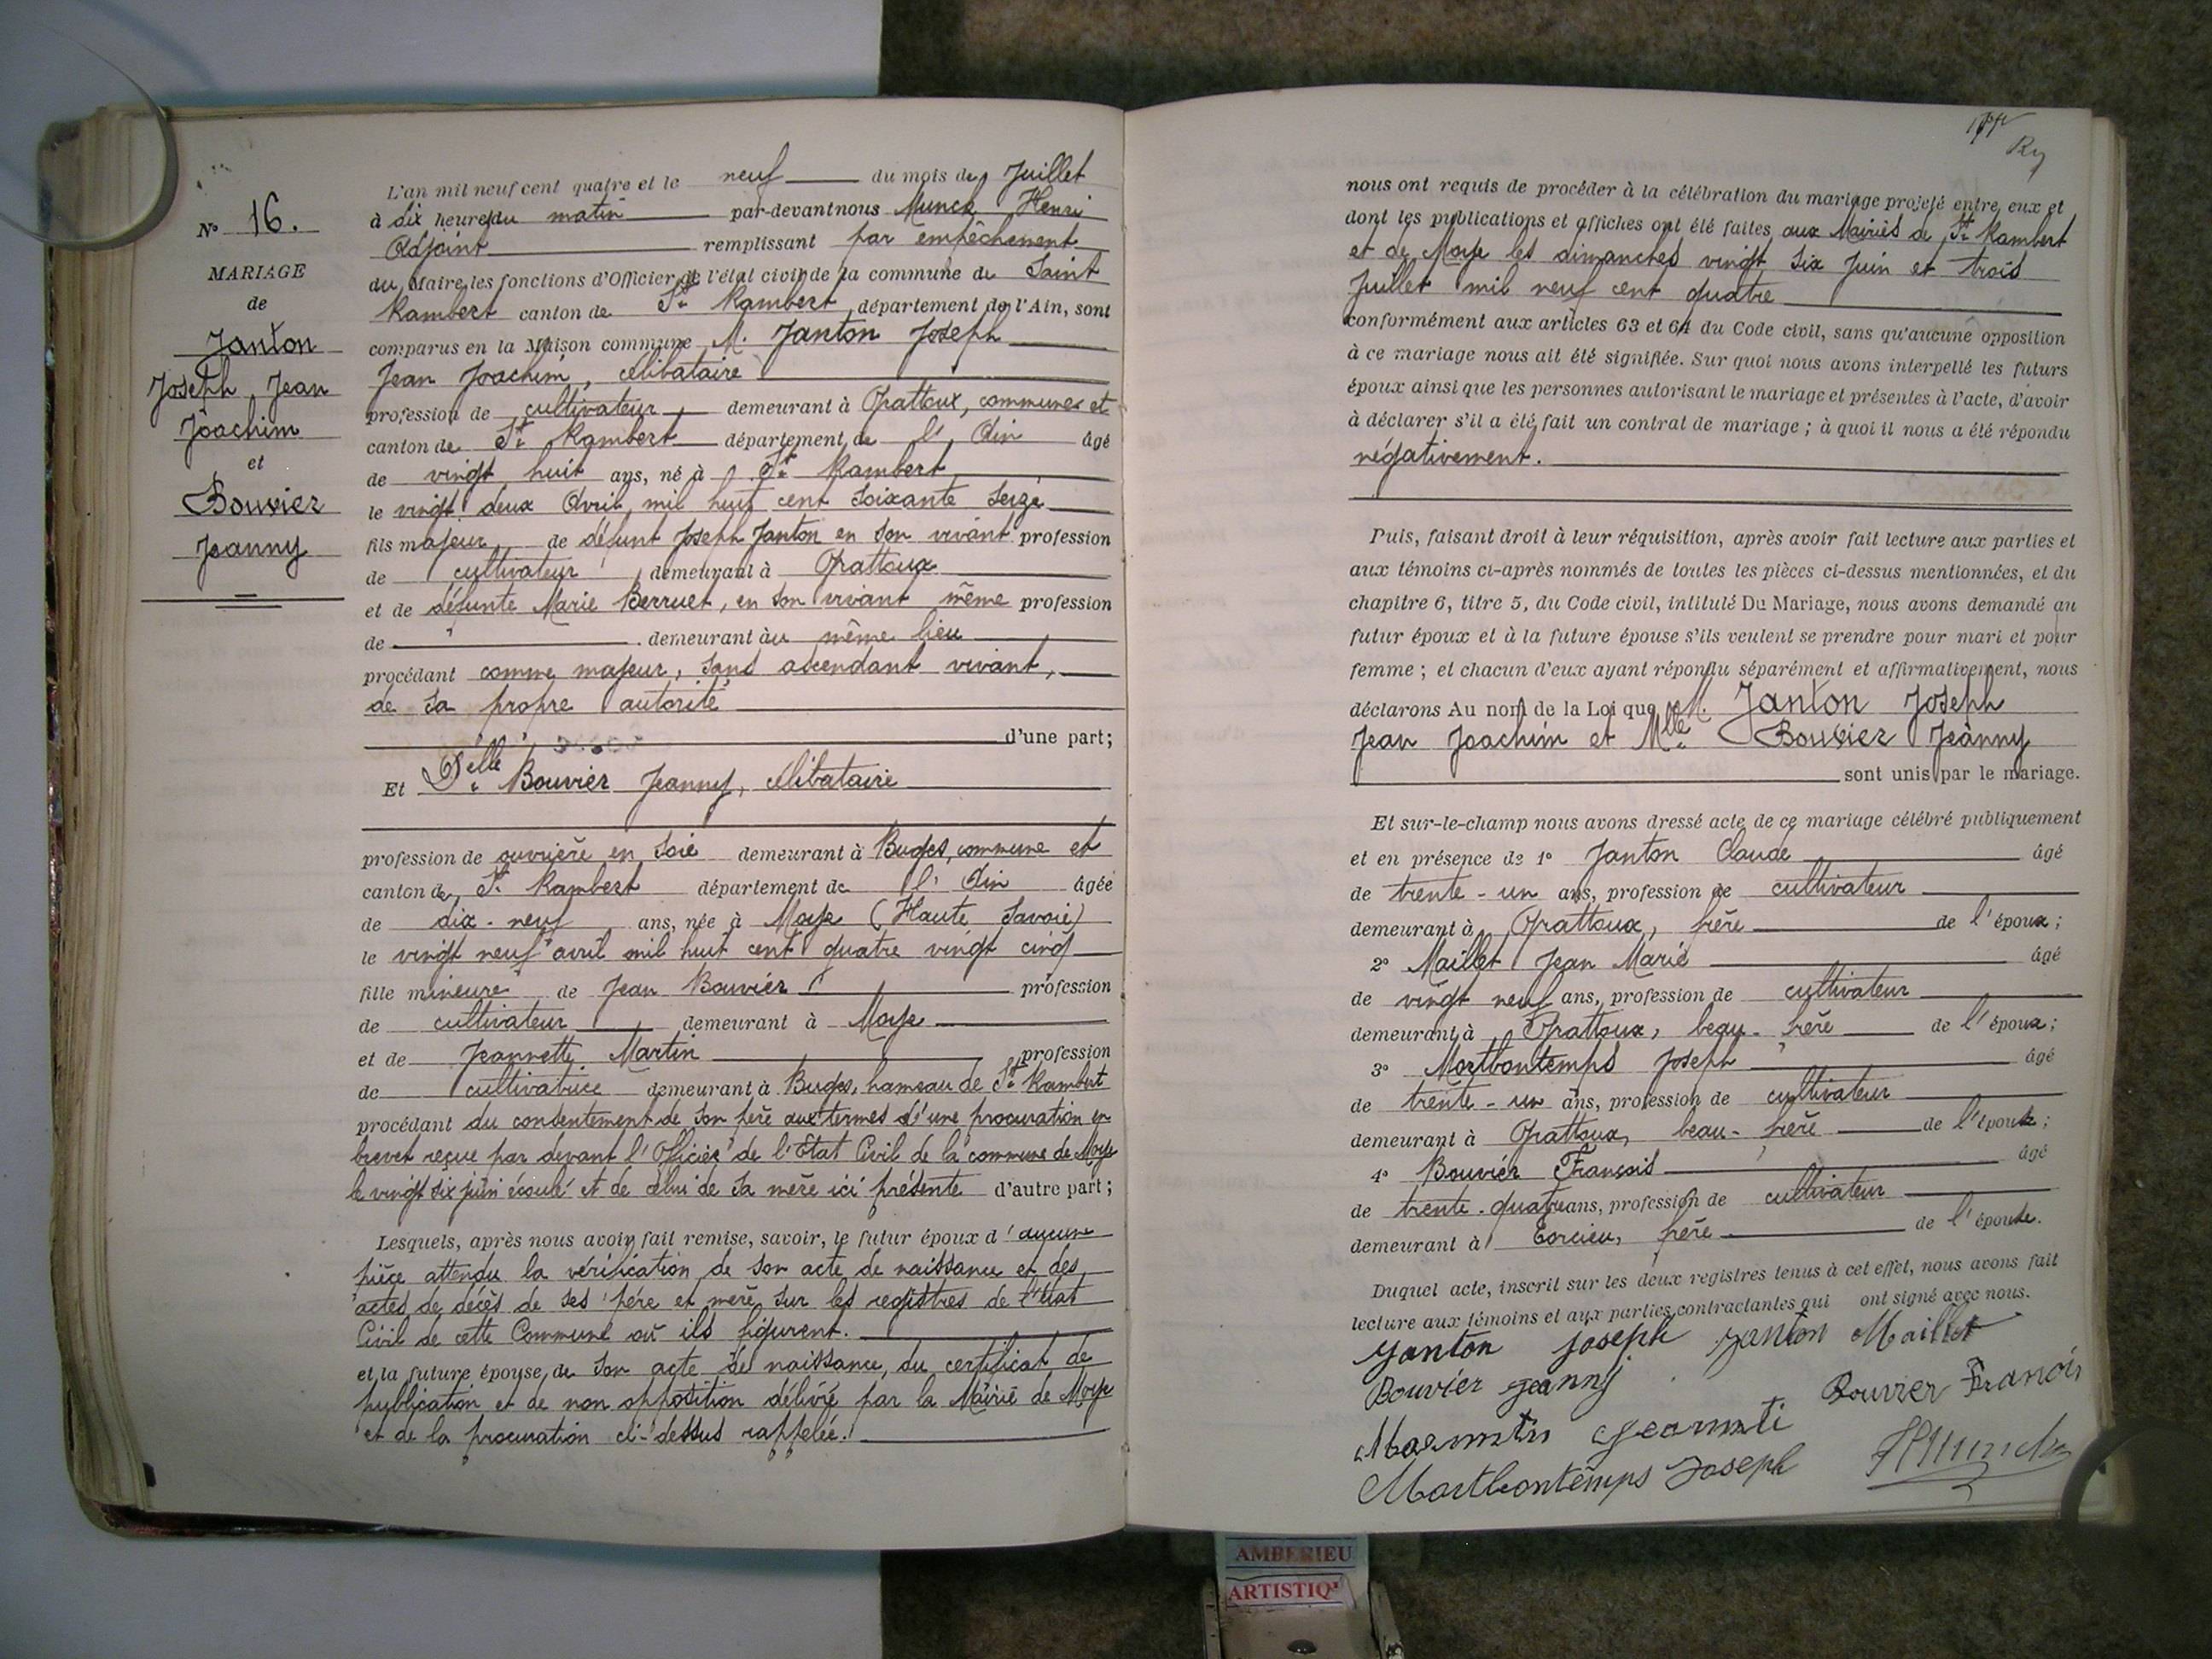 N° 16.
MARIAGE
de
Janton
Joseph Jean
Joachim
et
Bouvier
Jeanny
L'an mil neuf cent quatre et le neuf du mois de Juillet
à dix heures du matin par-devant nous Munck Henri
Adjoint remplissant par empêchement
du Maire les fonctions d'Officier de l'état civil de la commune de Saint
Rambert canton de St Rambert, département de l'Ain, sont
comparus en la Maison commune M. Janton Joseph
Jean Joachim, célibataire
profession de cultivateur demeurant à Grattoux, commune et
canton de St Rambert département de l'Ain âgé
de vingt huit ans, né à St Rambert
le vingt deux Avril mil huit cent soixante seize
fils majeur de défunt Joseph Janton en son vivant profession
de cultivateur demeurant à Grattoux
et de défunte Marie Berruet, en son vivant même profession
de demeurant au même lieu
procédant comme majeur, sans ascendant vivant,
de sa propre autorité
d'une part;
Et Delle Bouvier Jeanny, célibataire
profession de ouvrière en soie demeurant à Buges, commune et
canton de St Rambert département de l'Ain âgée
de dix-neuf ans, née à Moye (Haute Savoie)
le vingt neuf avril mil huit cent quatre vingt cinq
fille mineure de Jean Bouvier profession
de cultivateur demeurant à Moye
et de Jeannette Martin profession
de cultivatrice demeurant à Buges, hameau de St Rambert
procédant du consentement de son père aux termes d'une procuration en
brevet reçue par devant l'Officier de l'Etat Civil de la commune de Moye
le vingt six juin écoulé et de celui de sa mère ici présente d'autre part;
Lesquels, après nous avoir fait remise, savoir, le futur époux d'aucune
pièce attendu la vérification de son acte de naissance et des
actes de décès de ses père et mère sur les registres de l'Etat
Civil de cette Commune où ils figurent.
et la future épouse, de son acte de naissance, du certificat de
publication et de non opposition délivré par la Mairie de Moye
et de la procuration ci-dessus rappelée.
nous ont requis de procéder à la célébration du mariage projeté entre eux et
dont les publications et affiches ont été faites aux Mairies de St Rambert
et de Moye les dimanches vingt six Juin et trois
Juillet mil neuf cent quatre
conformément aux articles 63 et 64 du Code civil, sans qu'aucune opposition
à ce mariage nous ait été signifiée. Sur quoi nous avons interpellé les futurs
époux ainsi que les personnes autorisant le mariage et présentes à l'acte, d'avoir
à déclarer s'il a été fait un contrat de mariage; à quoi il nous a été répondu
négativement.
Puis, faisant droit à leur réquisition, après avoir fait lecture aux parties et
aux témoins ci-après nommés de toutes les pièces ci-dessus mentionnées, et du
chapitre 6, titre 5, du Code civil, intitulé Du Mariage, nous avons demandé au
futur époux et à la future épouse s'ils veulent se prendre pour mari et pour
femme; et chacun d'eux ayant répondu séparément et affirmativement, nous
déclarons Au nom de la Loi que M. Janton Joseph
Jean Joachim et Mlle Bouvier Jeanny
sont unis par le mariage.
Et sur-le-champ nous avons dressé acte de ce mariage célébré publiquement
et en présence de 1° Janton Claude âgé
de trente-un ans, profession de cultivateur
demeurant à Grattoux, frère de l'époux;
2° Maillet Jean Marie âgé
de vingt neuf ans, profession de cultivateur
demeurant à Grattoux, beau-frère de l'époux;
3° Mortbontemps Joseph âgé
de trente-un ans, profession de cultivateur
demeurant à Grattoux, beau-frère de l'époux;
4° Bouvier François âgé
de trente-quatre ans, profession de cultivateur
demeurant à Torcieu, frère de l'épouse.
Duquel acte, inscrit sur les deux registres tenus à cet effet, nous avons fait
lecture aux témoins et aux parties contractantes qui ont signé avec nous.
Janton Joseph Janton Maillet
Bouvier Jeanny
Bouvier Francois
Mortbontemps Joseph HMunck
AMBERIEU
ARTISTIQ